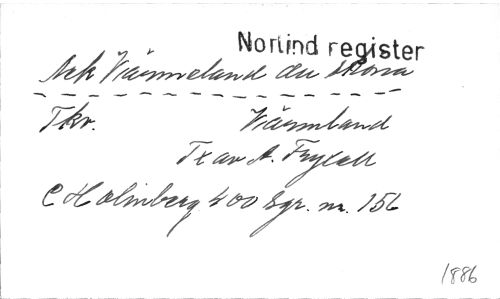 Norlind register
Ack Värmeland du sköna
Tkr. Värmland
Tx av A. Fryxell
C Holmberg 400 Sgr. nr. 156
1886